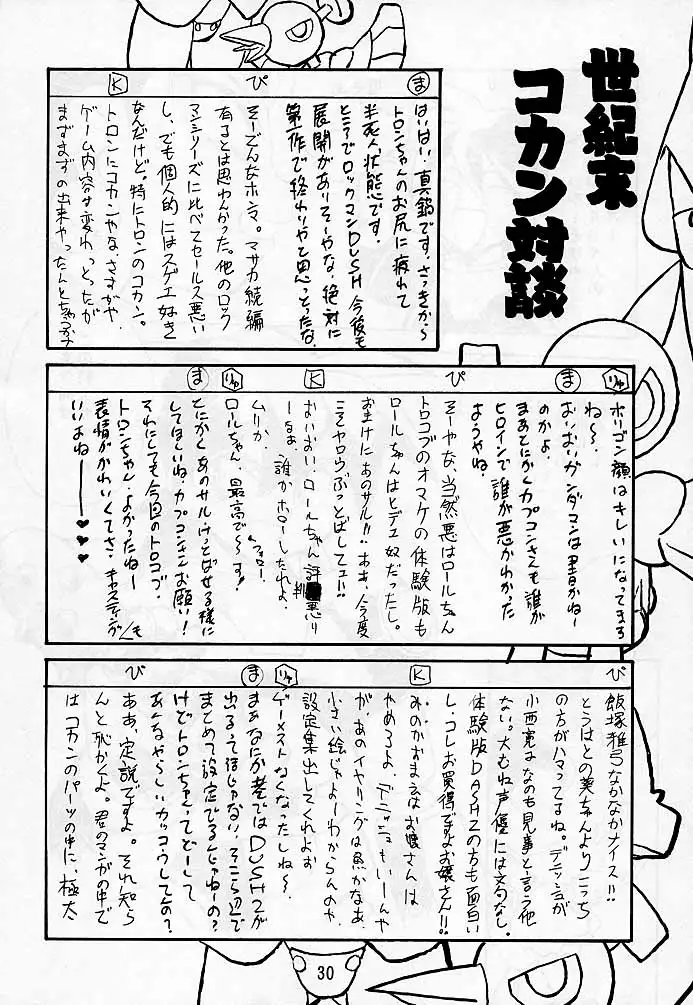 世紀末
コカン対談
ま
ぴ
K
はいはい、真鍋です。さっきから
トロンちゃんのお尻に疲れて
半死人状態です。
ところでロックマンDUSH今後も
展開がありそーやな、絶対に
第一作で終わりやと思っとったな。
そーどんなホンマ。マサカ続編
有るとは思わんかった。他のロック
マンシリーズに比べてセールス悪い
し、でも個人的にはスゲェ好き
なんだけど。特にトロンのコカン。
トロンにコカンやな、さすがや、
ゲーム内容は変わっとったが
まずまずの出来やったんとちゃうか
りゅ
ま
ぴ
K
りゅ
ま
ポリゴン顔はキレイになってまる
ね〜。
おいおいガンダマンは
のかよ。
まあとにかくカプコンさんも誰が
ヒロインで誰が悪かわかった
ようやね。
そーやな、当然悪はロールちゃん
トロコブのオマケの体験版も
ロールちゃんはヒデェ奴だったし。
おまけにあのサル!!おお、今度
こそヤロウぶっとばしてェ!!
おいおい、ロールちゃん評悪り
ーなぁ、誰かホローしたれよ。
ムリか
ロールちゃん、最高で〜す!
フォロー
とにかくあのサルけっとばせる様に
してほしいね、カプコンさんお願い!
それにしても今回のトロコブ
トロンちゃん、よかったねー
表情がかわいくてさ、キャスティングも
いいよねー♥♥♥
ぴ
K
りゅ
ま
ぴ
飯塚雅弓なかなかナイス!!
とうはとの美ちゃんよりこっち
の方がハマってるね。デニッシュが
小西寛はなのも見事と言う他
ない。大むね声優には文句なし。
体験版DASH2の方も面白い
し、コレお買得ですよお嬢さん!!
みのかおまえはお嬢さんは
やめろよ、デニッシュもいーんや
が、あのイヤリングは魚かなあ、
小さい絵じゃよーわからんのや、
設定集出してくれよお
ゲーメストなくなったしね〜、
まぁなにか巷ではDUSH2が
出るって話じゃない、そこら辺で
まとめて設定でるんじゃねーの?
けどトロンちゃんってどーして
あんなやらしいカッコウしてんの?
ああ、定説ですよ。それ知ら
んと恥かくよ。君のマンガの中で
はコカンのパーツの中に、極太
30